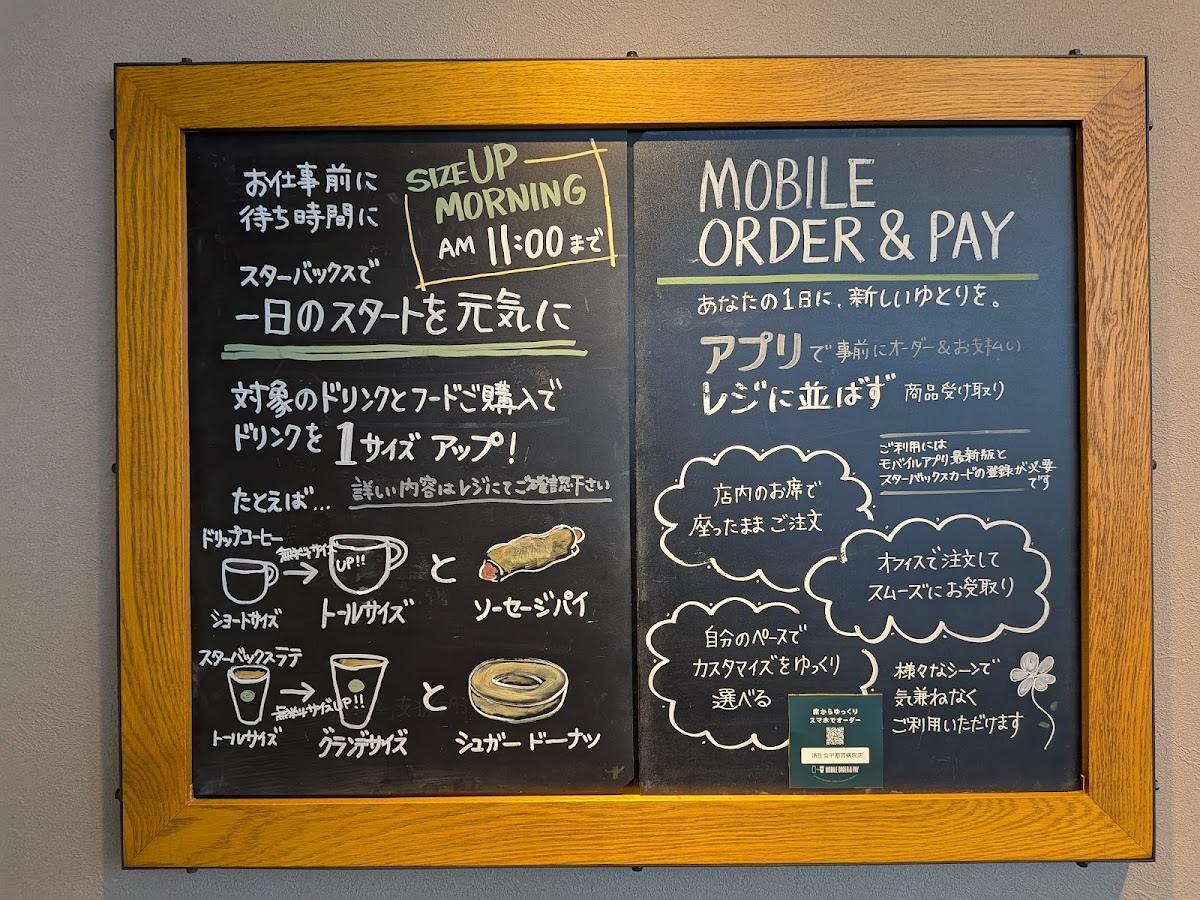 お仕事前に
待ち時間に
SIZE UP
MORNING
AM 11:00まで
スターバックスで
一日のスタートを元気に
対象のドリンクとフードご購入で
ドリンクを1サイズアップ!
たとえば… 詳しい内容はレジにてご確認下さい
ドリップコーヒー
無料サイズ
UP!!
と
ショートサイズ
トールサイズ
ソーセージパイ
スターバックスラテ
無料サイズUP!!
と
トールサイズ
グランデサイズ
シュガードーナツ
MOBILE
ORDER & PAY
あなたの1日に、新しいゆとりを。
アプリで事前にオーダー&お支払い
レジに並ばず 商品受け取り
ご利用には
モバイルアプリ最新版と
スターバックスカードの登録が必要
です
店内のお席で
座ったままご注文
オフィスで注文して
スムーズにお受取り
自分のペースで
カスタマイズをゆっくり
選べる
様々なシーンで
気兼ねなく
ご利用いただけます
席からゆっくり
スマホでオーダー
済生会宇都宮病院店
MOBILE ORDER & PAY